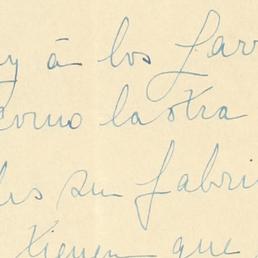 y á los Farr
como la otra
les su fabri
tienen que